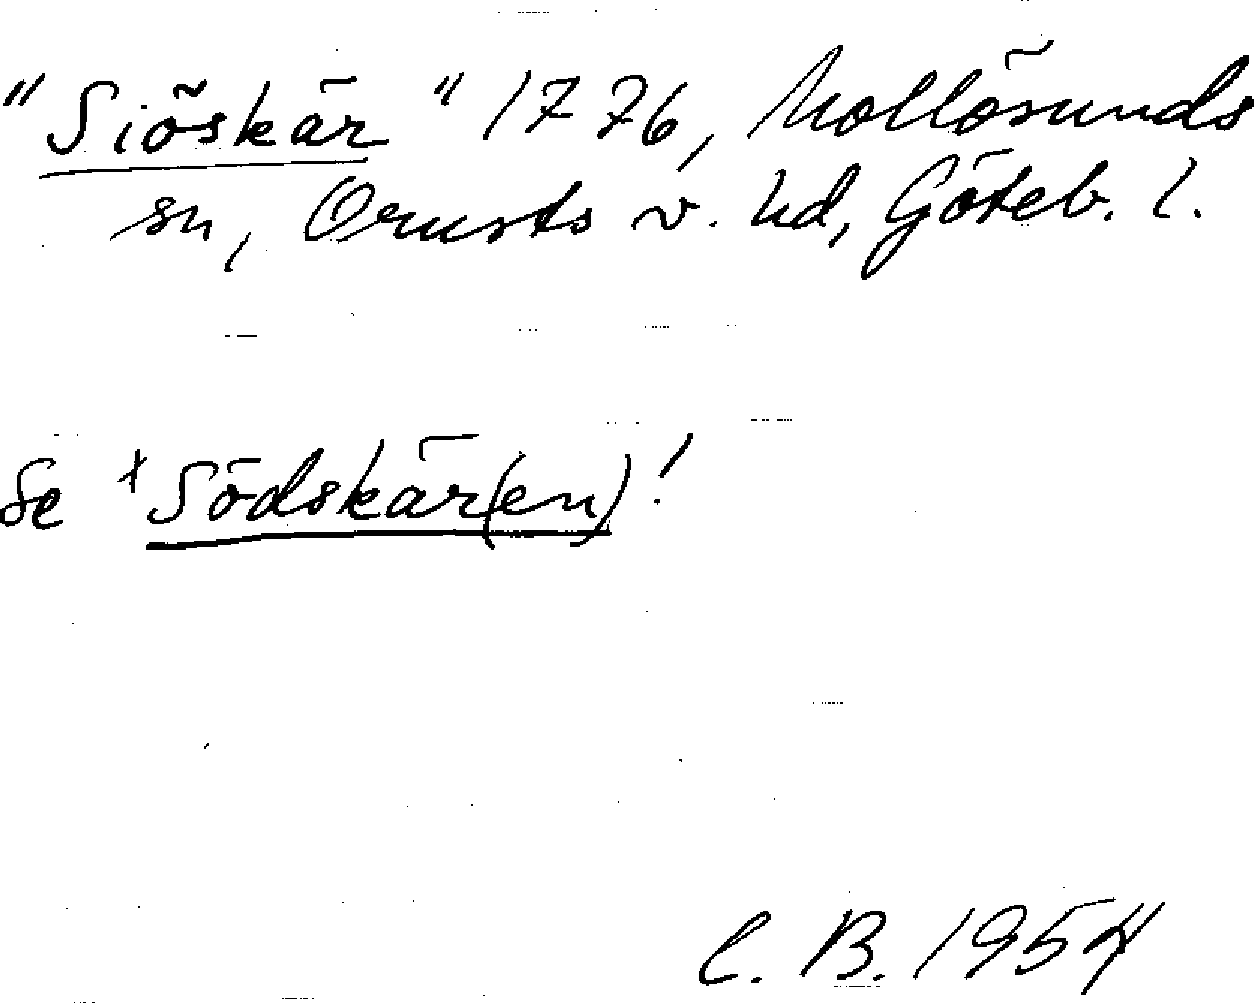 "Siöskär" 1776, Mollösunds
sn, Orusts v. hd, Göteb. l.
Se +Södskär(en)!
C. B. 1954